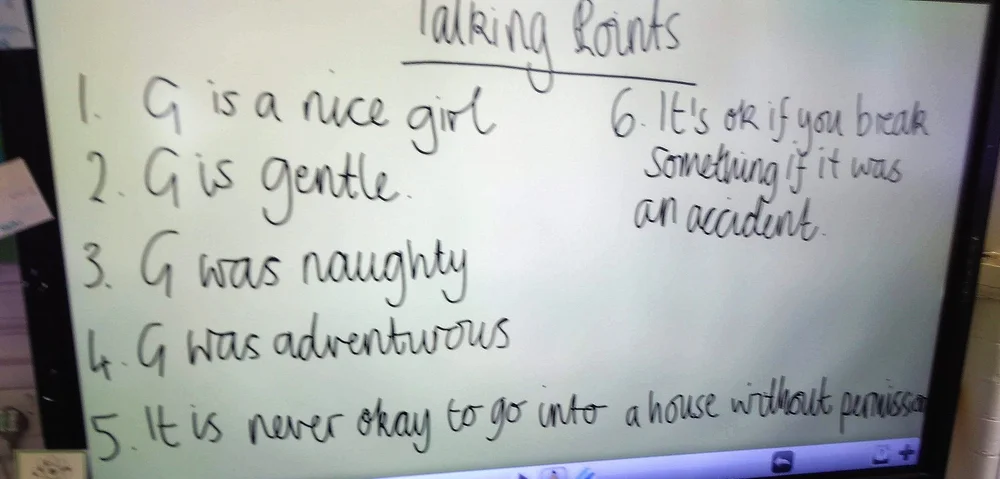 Talking Points
1. G is a nice girl
2. G is gentle.
3. G was naughty
4. G was adventurous
5. It is never okay to go into a house without permission
6. It's ok if you break
something if it was
an accident.